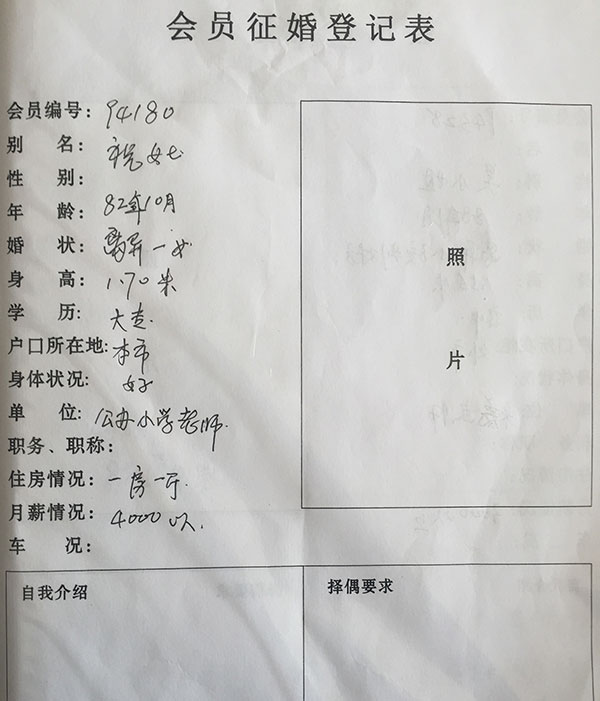 会员征婚登记表
会员编号：94180
别　名：女士
性　别：
年　龄：82年10月
婚　状：离异一女
身　高：1.70米
学　历：大专.
户口所在地:本市
身体状况:好
单　位:公办小学老师.
职务、职称:
住房情况：一房一厅.
月薪情况：4000以.
车　况：
照
片
自我介绍
择偶要求